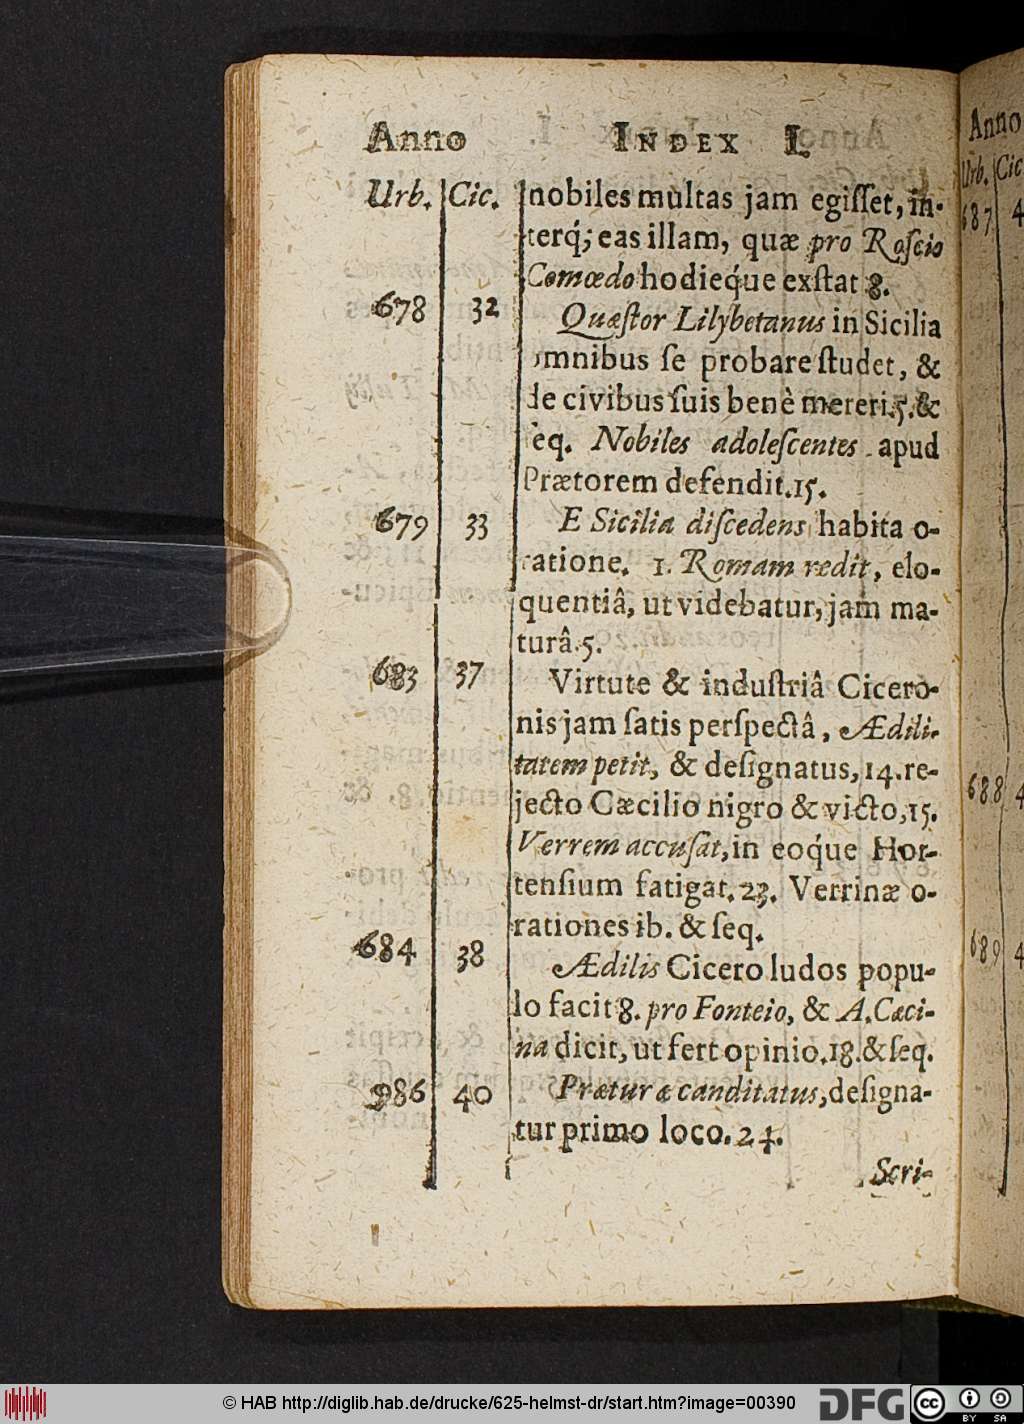 Anno INDEX I.
Urb. Cic. nobiles multas jam egiſſet, in-
terq́; eas illam, quæ pro Roſcio
Comœdo hodieq́ue exſtat 8.
678 32 Quæſtor Lilybetanus in Sicilia
omnibus ſe probare ſtudet, &
de civibus ſuis benè mereri.5.&
ſeq. Nobiles adoleſcentes apud
Prætorem defendit.15.
679 33 E Sicilia diſcedens habita o-
ratione. 1. Romam redit, elo-
quentiâ, ut videbatur, jam ma-
turâ.5.
683 37 Virtute & induſtriâ Cicero-
nis jam ſatis perſpectâ, Ædili-
tatem petit, & deſignatus, 14. re-
jecto Cæcilio nigro & victo, 15.
Verrem accuſat, in eoq́ue Hor-
tenſium fatigat. 23. Verrinæ o-
rationes ib. & ſeq.
684 38 Ædilis Cicero ludos popu-
lo facit 8. pro Fonteio, & A. Cæci-
na dicit, ut fert opinio.18.& ſeq.
986 40 Præturæ canditatus, deſigna-
tur primo loco. 24.
Scri-
Anno
Urb. Cic
687 4
688 4
689 4
© HAB http://diglib.hab.de/drucke/625-helmst-dr/start.htm?image=00390
DFG
cc BY SA